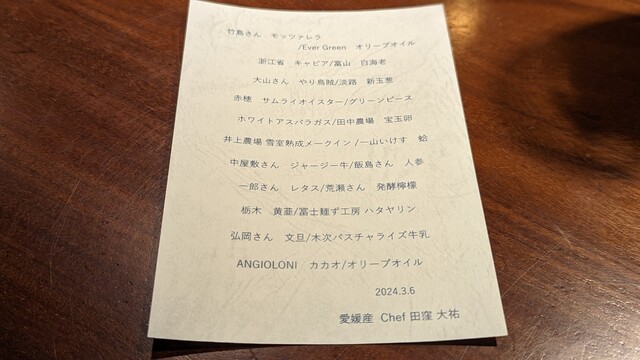 竹島さん　モッツァレラ
/Ever Green　オリーブオイル
浙江省　キャビア/富山　白海老
大山さん　やり烏賊/淡路　新玉葱
赤穂　サムライオイスター/グリーンピース
ホワイトアスパラガス/田中農場　宝玉卵
井上農場 雪室熟成メークイン /一山いけす　蛤
中屋敷さん　ジャージー牛/飯島さん　人参
一郎さん　レタス/荒瀬さん　発酵檸檬
栃木　黄韮/冨士麺ず工房 ハタヤリン
弘岡さん　文旦/木次パスチャライズ牛乳
ANGIOLONI　カカオ/オリーブオイル
2024.3.6
愛媛産　Chef 田窪 大祐